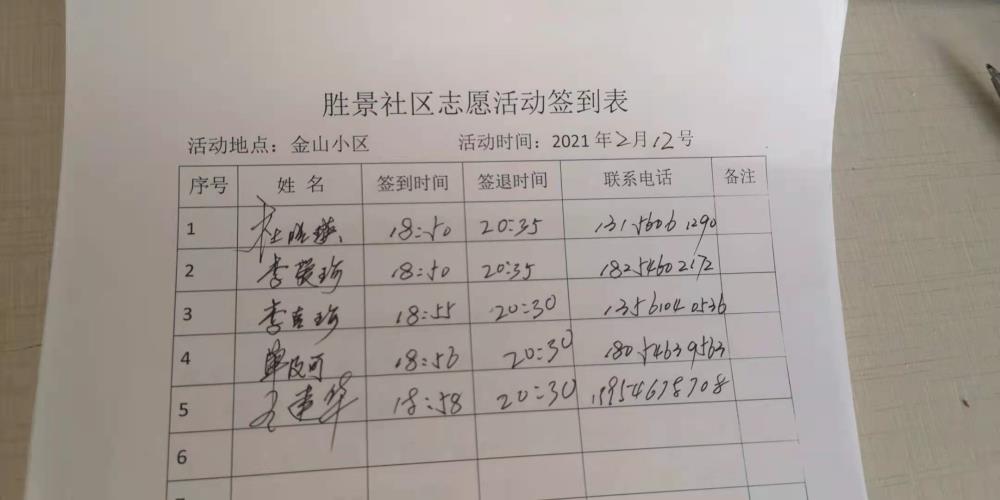 胜景社区志愿活动签到表
活动地点：金山小区 活动时间：2021年2月12号
序号 姓名 签到时间 签退时间 联系电话 备注
1 杜晓 18:50 20:35 13156061290
2 李爱珍 18:50 20:35 18254602172
3 李吉珍 18:55 20:30 13561040536
4 单 可 18:56 20:30 18054639563
5 王建华 18:58 20:30 19954678708
6